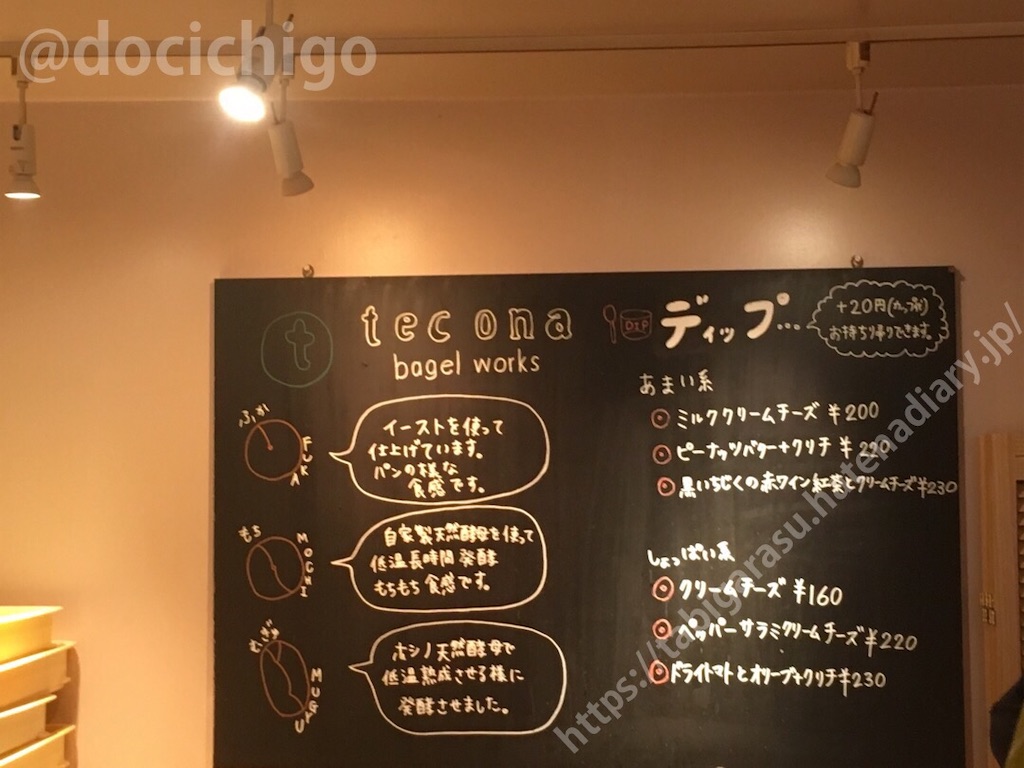 @docichigo
t
tecona
bagel works
ふか
FUKA
イーストを使って
仕上げています。
パンの様な
食感です。
もち
MOCHI
自家製天然酵母を使って
低温長時間発酵
もちもち食感です。
むぎゅ
MUGYU
ホシノ天然酵母で
低温熟成させる様に
発酵させました。
DIP
ディップ...
+20円(カップ付)
お持ち帰りできます。
あまい系
ミルククリームチーズ ¥200
ピーナッツバター+クリチ ¥220
黒いちじくの赤ワイン紅茶とクリームチーズ¥230
しょっぱい系
クリームチーズ ¥160
ペッパーサラミクリームチーズ¥220
ドライトマトとオリーブ+クリチ¥230
https://tabigarasu.hatenadiary.jp/